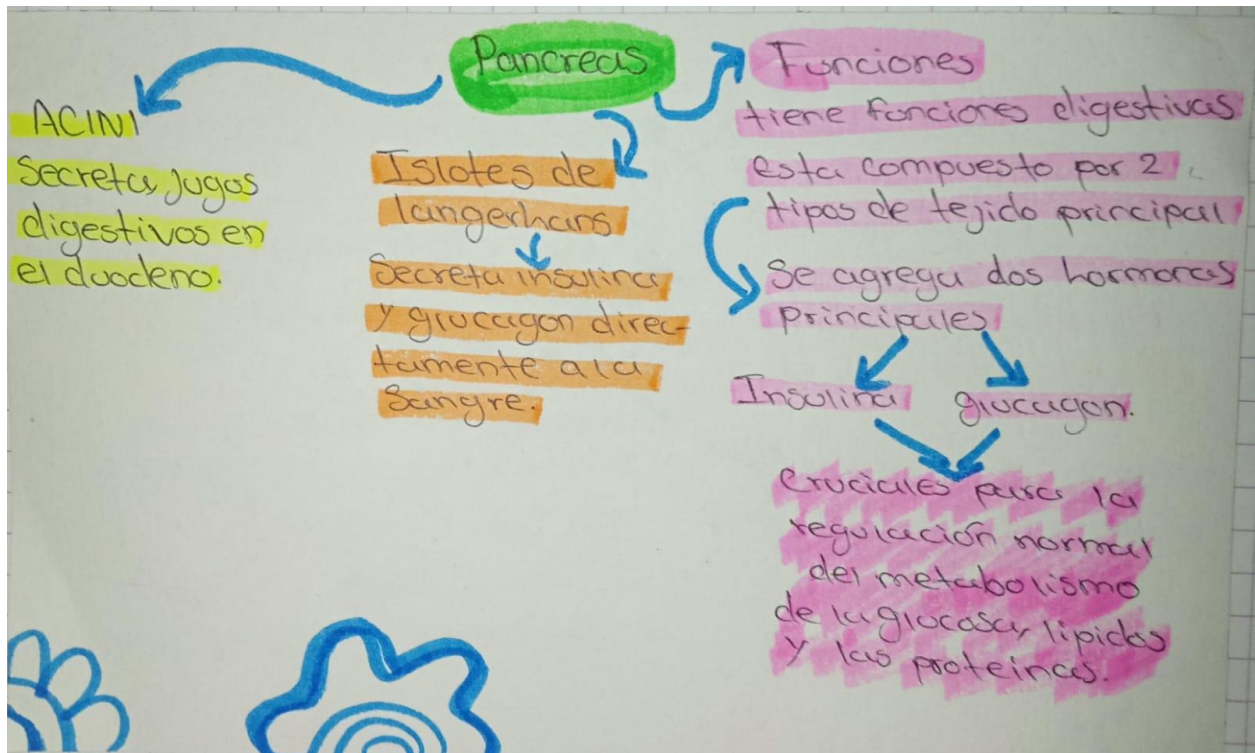 Pancreas
ACINI
Secreta jugos
digestivos en
el duodeno.
Islotes de
langerhans
Secreta insulina
y glucagon direc-
tamente a la
Sangre.
Funciones
tiene funciones digestivas
esta compuesto por 2
tipos de tejido principal
Se agrega dos hormonas
principales
Insulina glucagon.
Cruciales para la
regulación normal
del metabolismo
de la glucosa, lipidos
y las proteinas.